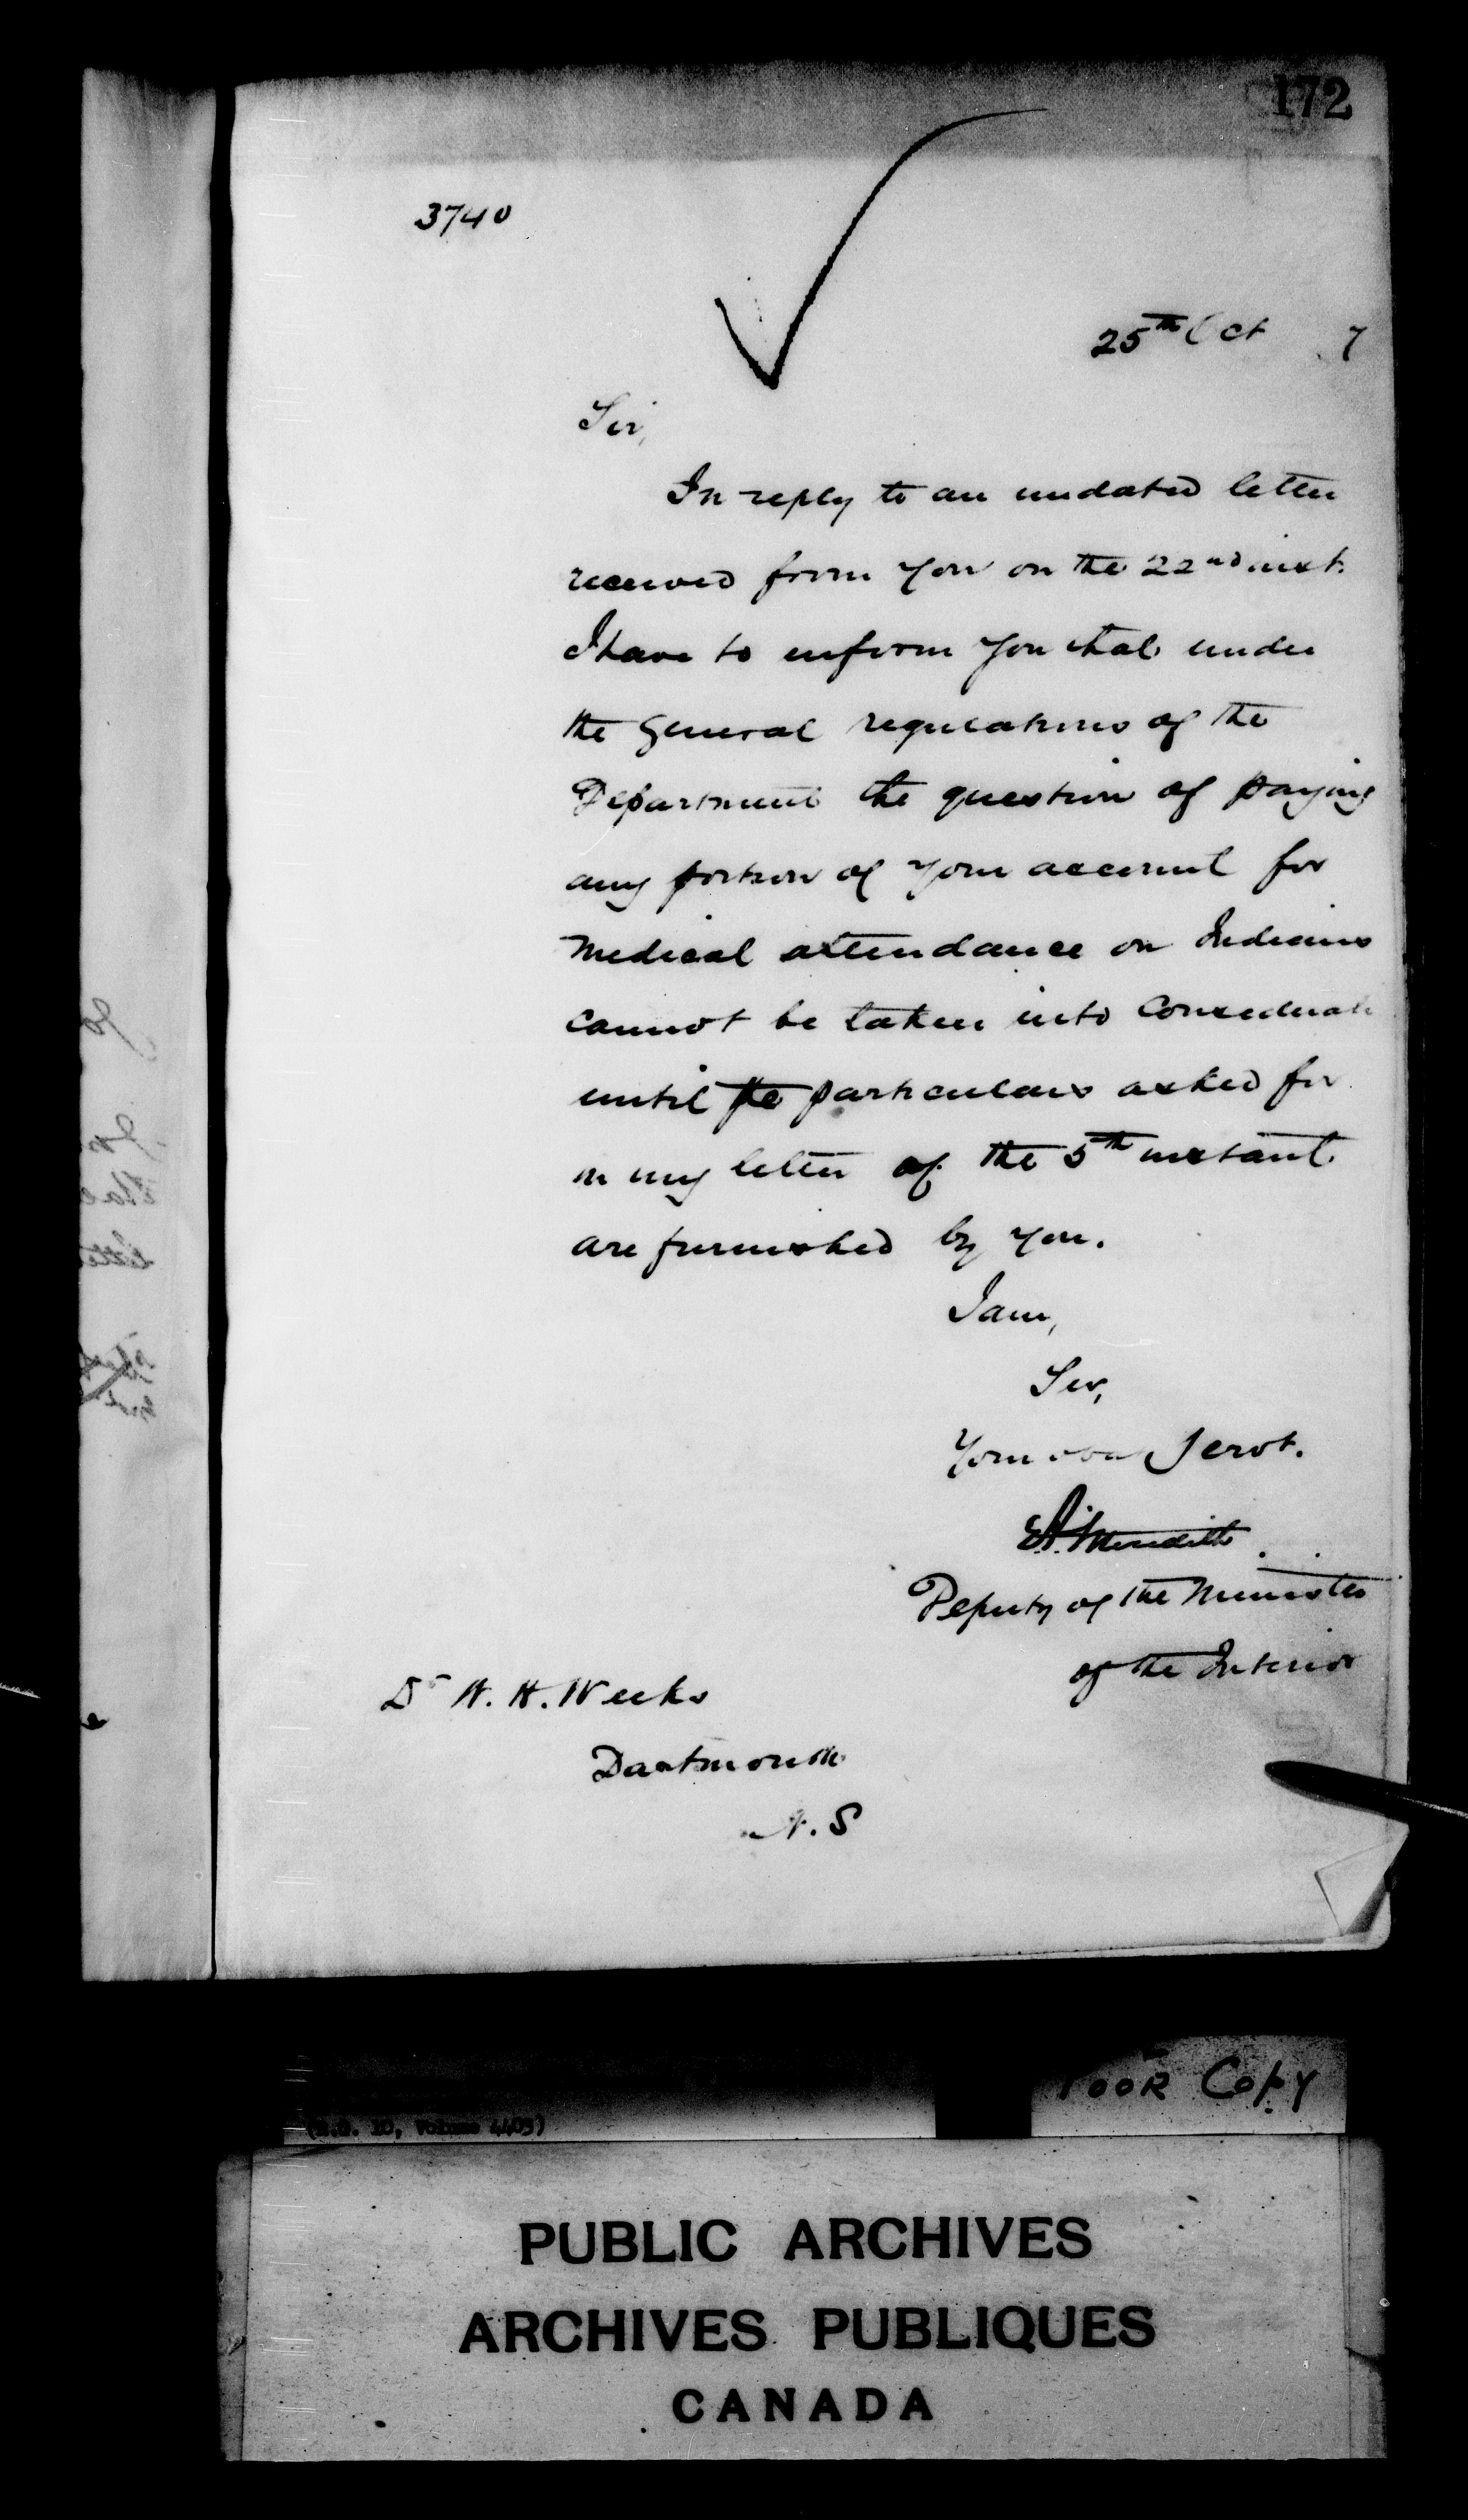 172
3740
25th Oct 7
Sir,
In reply to an undated letter
received from you on the 22nd inst.
I have to inform you that under
the General regulations of the
Department the question of paying
any portion of your account for
Medical attendance on Indians
cannot be taken into Considerati
until the particulars asked for
in my letter of the 5th instant
are furnished by you.
I am,
Sir,
Your Servt.
E.A. Meredith
Deputy of the Minister
of the Interior
Dr W. H. Weeks
Dartmouth
N.S
Poor Copy
(R.G. 10, Volume 4409)
PUBLIC ARCHIVES
ARCHIVES PUBLIQUES
CANADA